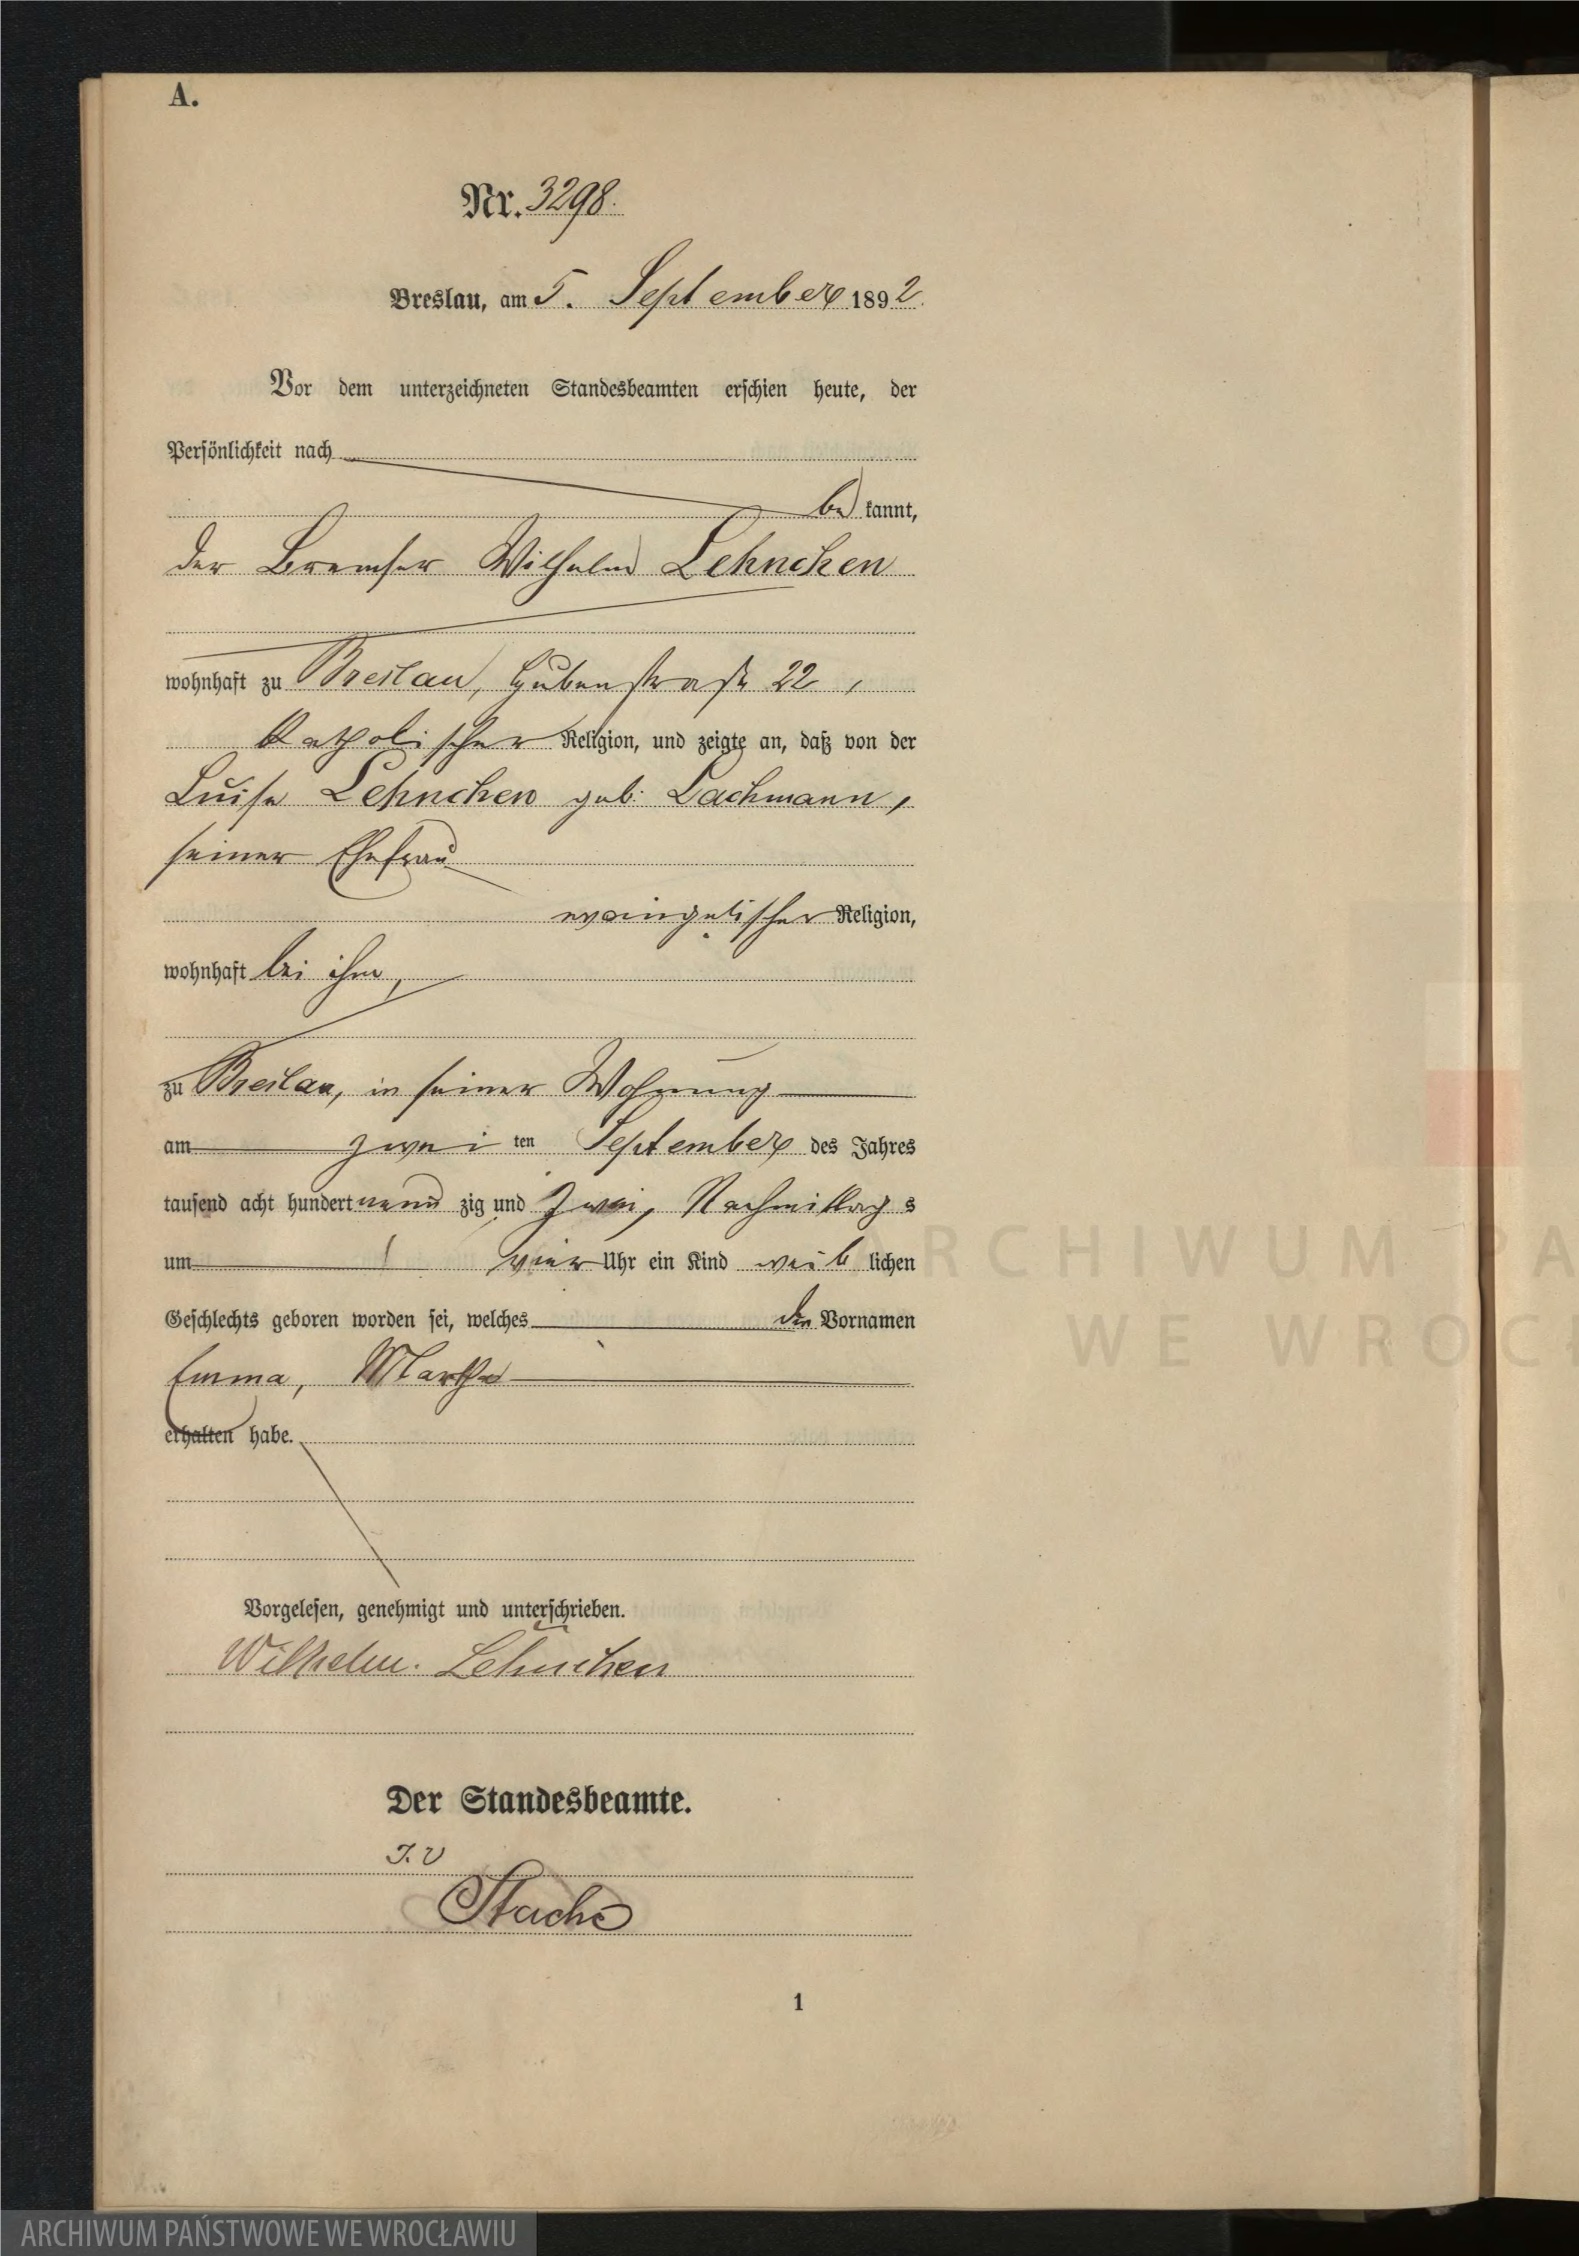 A.
Nr. 3298.
Breslau, am 5. September 1892.
Vor dem unterzeichneten Standesbeamten erschien heute, der
Persönlichkeit nach
be kannt,
der Bremser Wilhelm Lehnchen
wohnhaft zu Breslau, Hubenstraße 22,
katholischer Religion, und zeigte an, daß von der
Luise Lehnchen geb. Lachmann,
seiner Ehefrau
evangelischer Religion,
wohnhaft bei ihm,
zu Breslau, in seiner Wohnung
am zwei ten September des Jahres
tausend acht hundert neun zig und zwei, Nachmittag s
um vier Uhr ein Kind weib lichen
Geschlechts geboren worden sei, welches die Vornamen
Emma, Martha
erhalten habe.
Vorgelesen, genehmigt und unterschrieben.
Wilhelm. Lehnchen
Der Standesbeamte.
J. V
Stache
1
ARCHIWUM PA
WE WROCŁ
ARCHIWUM PAŃSTWOWE WE WROCŁAWIU